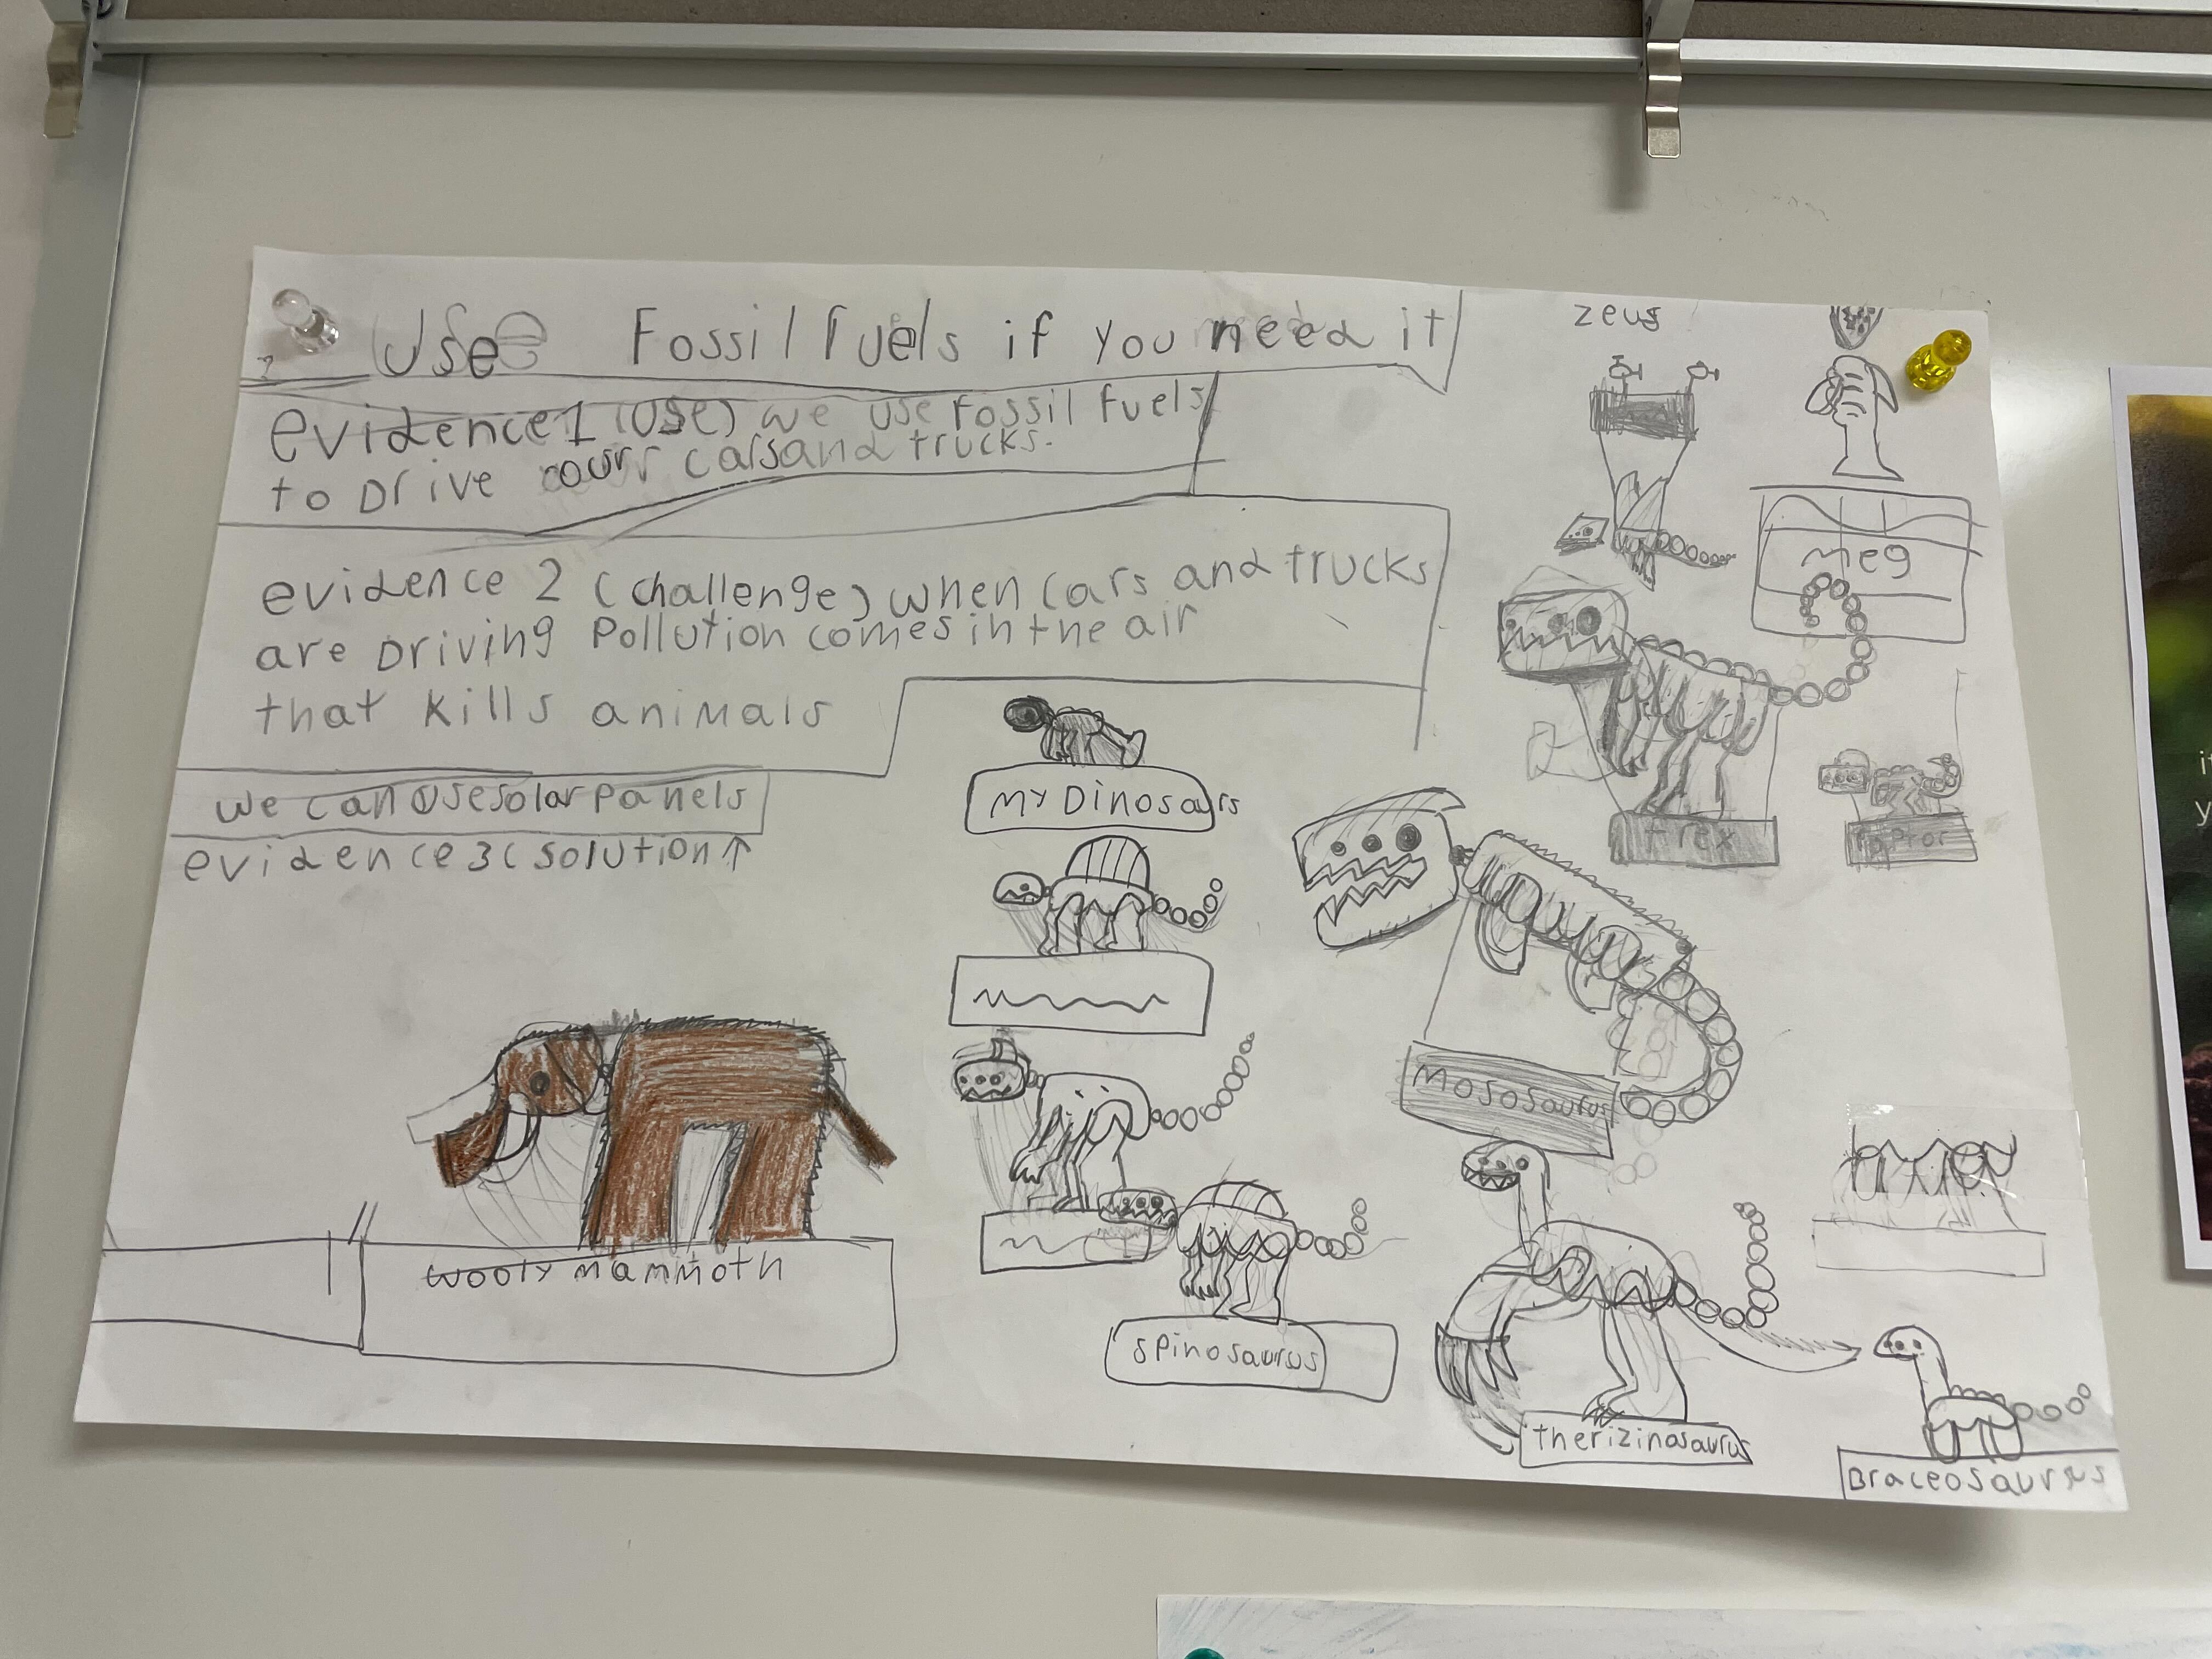 Use Fossil fuels if you need it
evidence 1 (Use) we use fossil fuels
to Drive our cars and trucks.
evidence 2 (challenge) when cars and trucks
are Driving Pollution comes in the air
that kills animals
we can use solar panels
evidence 3 (solution ↑
wooly mammoth
My Dinosaurs
spinosaurus
zeus
meg
t rex
raptor
mososaurus
therizinosaurus
Braceosaurus